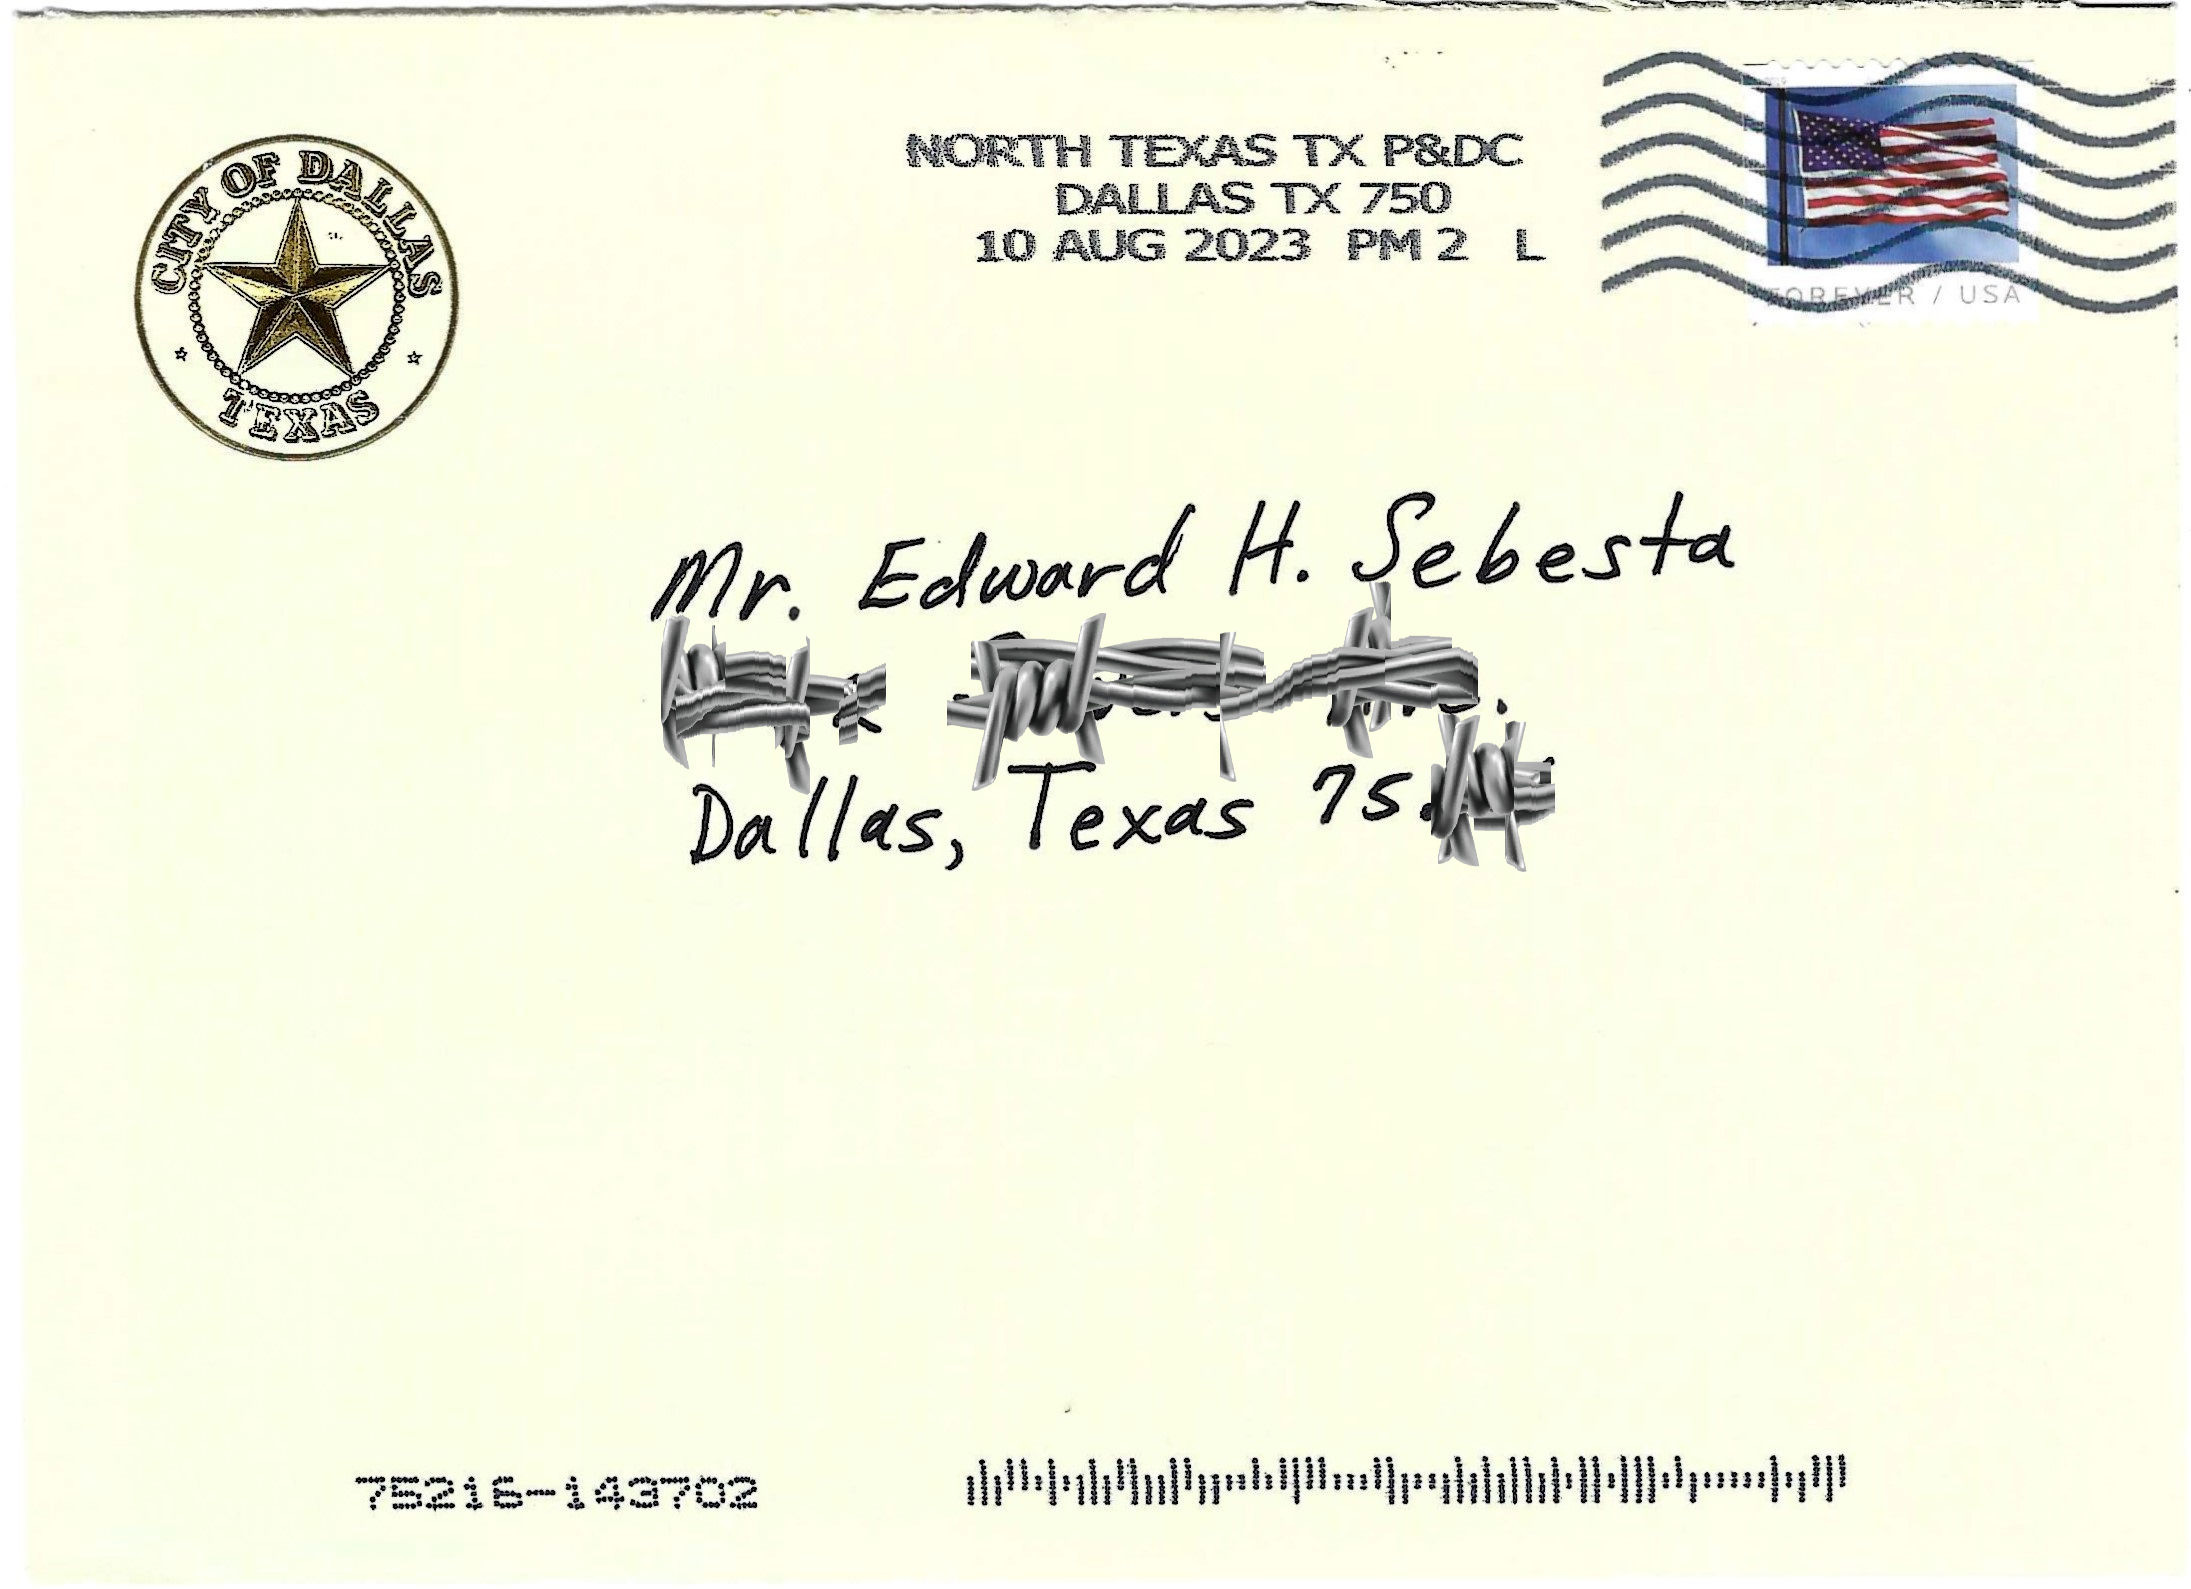 CITY OF DALLAS
TEXAS
NORTH TEXAS TX P&DC
DALLAS TX 750
10 AUG 2023 PM 2 L
FOREVER / USA
Mr. Edward H. Sebesta
Dallas, Texas 75
75216-143702